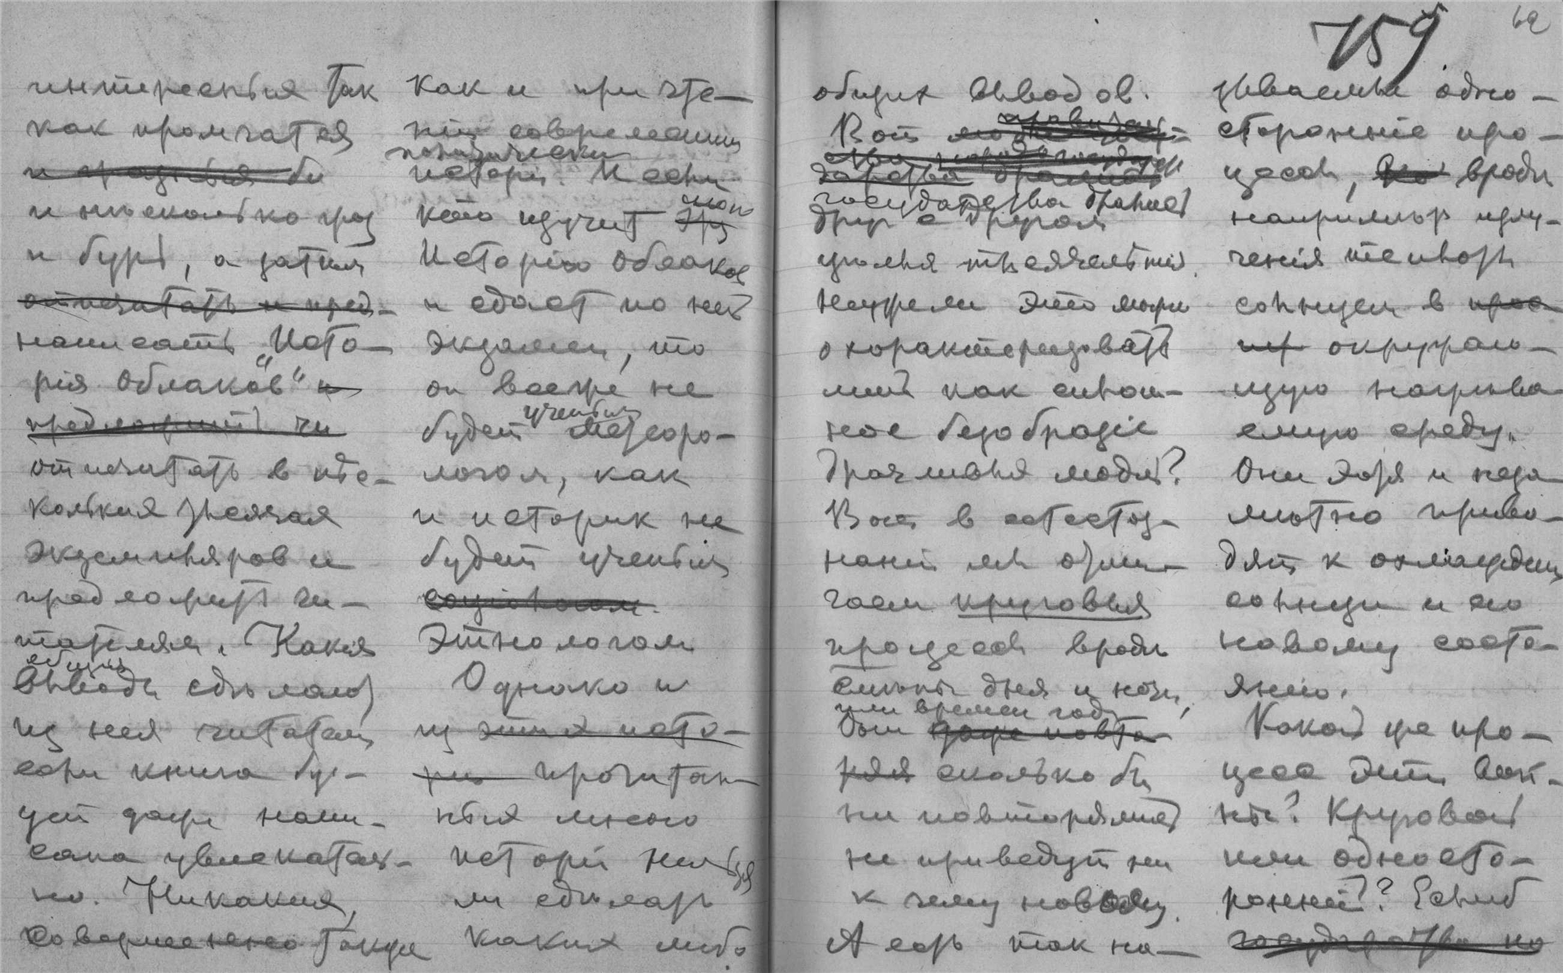 159
62
интересныя так
как промчатся
и грозныя бы
и несколько гроз
и бурь, а затем
отпечатать и пред-
написать „Исто-
рія Облаков“ и
предложить чи
отпечатать в нес-
колькия тысячах
экземпляров и
предложить чи-
тателям. Какия
общия
выводы сделают
из нея читатели
если книга бу-
дет даже напи-
сана увлекатель-
но. Никаких,
совершенно также
как и при чте-
ніи современных
политически
исторій. И если
кто изучит эту
мою
Исторію Облаков
и сдаст по ней
экзамен, то
он все же не
будет метеоро-
ученым
логом, как
и историк не
будет ученым
соціологом
Этнологом
Однако и
из этих исто-
рій прочитан-
ныя много
исторій нельзя
ли сделать
каких либо
общих выводов.
Вот
государства дрались
друг с другом
целыя тысячелетия.
Неужели это можно
охарактеризовать
лишь как сплош-
ное безобразіе
драчливыя людей?
Вот в естество-
наніи мы отли-
чаем круговыя
процессы вроде
смены дня и ночи,
или времен года
Они даже повто-
ряя сколько бы
ни повторялись
не приведут ни
к чему новому.
А есть так на-
зываемыя одно-
сторонніе про-
цессы, но вроде
например излу-
ченія теплоты
солнцем в прос
окружаю-
щую
среду.
Они хотя и неза-
метно приво-
дят к охлажденію
солнца и его
новому состо-
янію.
Какой же про-
цесс эти вой-
ны? Круговой
или односто-
ронній?
государства но